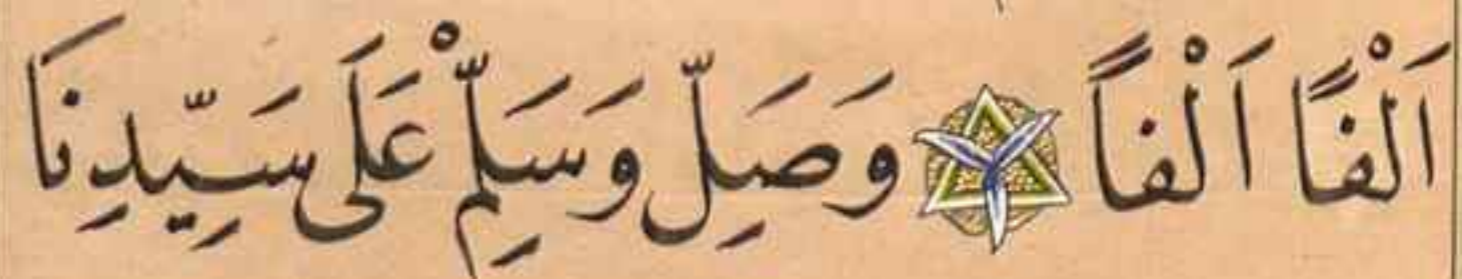 اَلْفًا اَلْفاً وَصَلِّ وَسَلِّمْ عَلَى سَيِّدِنَا